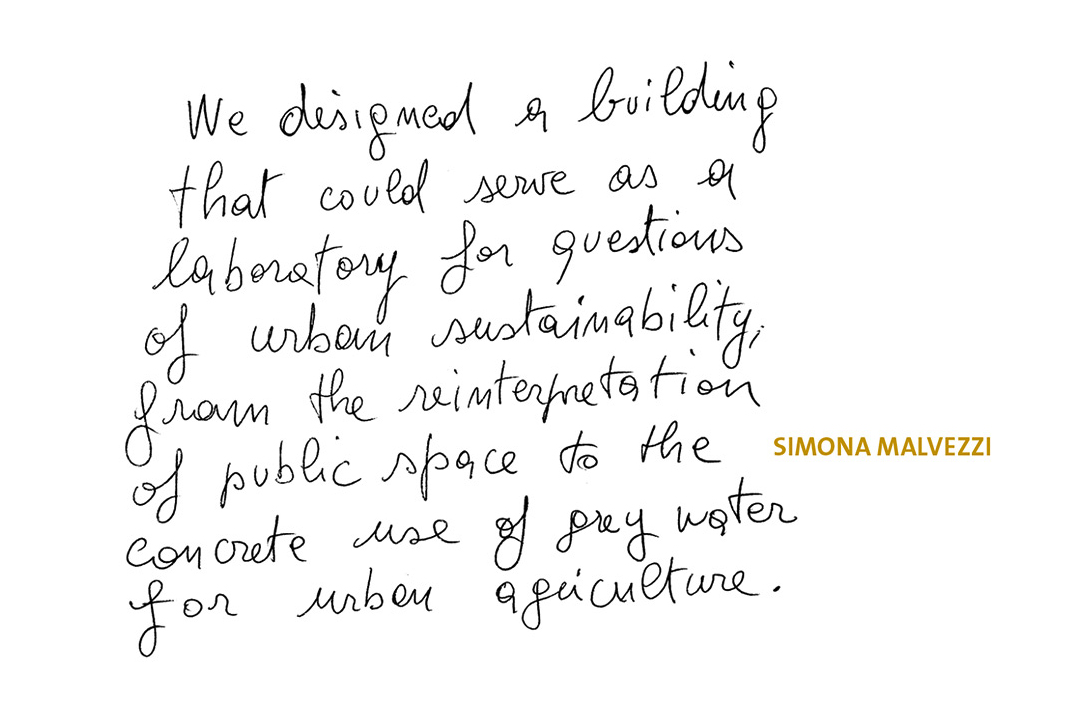 We designed a building
that could serve as a
laboratory for questions
of urban sustainability,
from the reinterpretation
of public space to the
SIMONA MALVEZZI
concrete use of grey water
for urban agriculture.